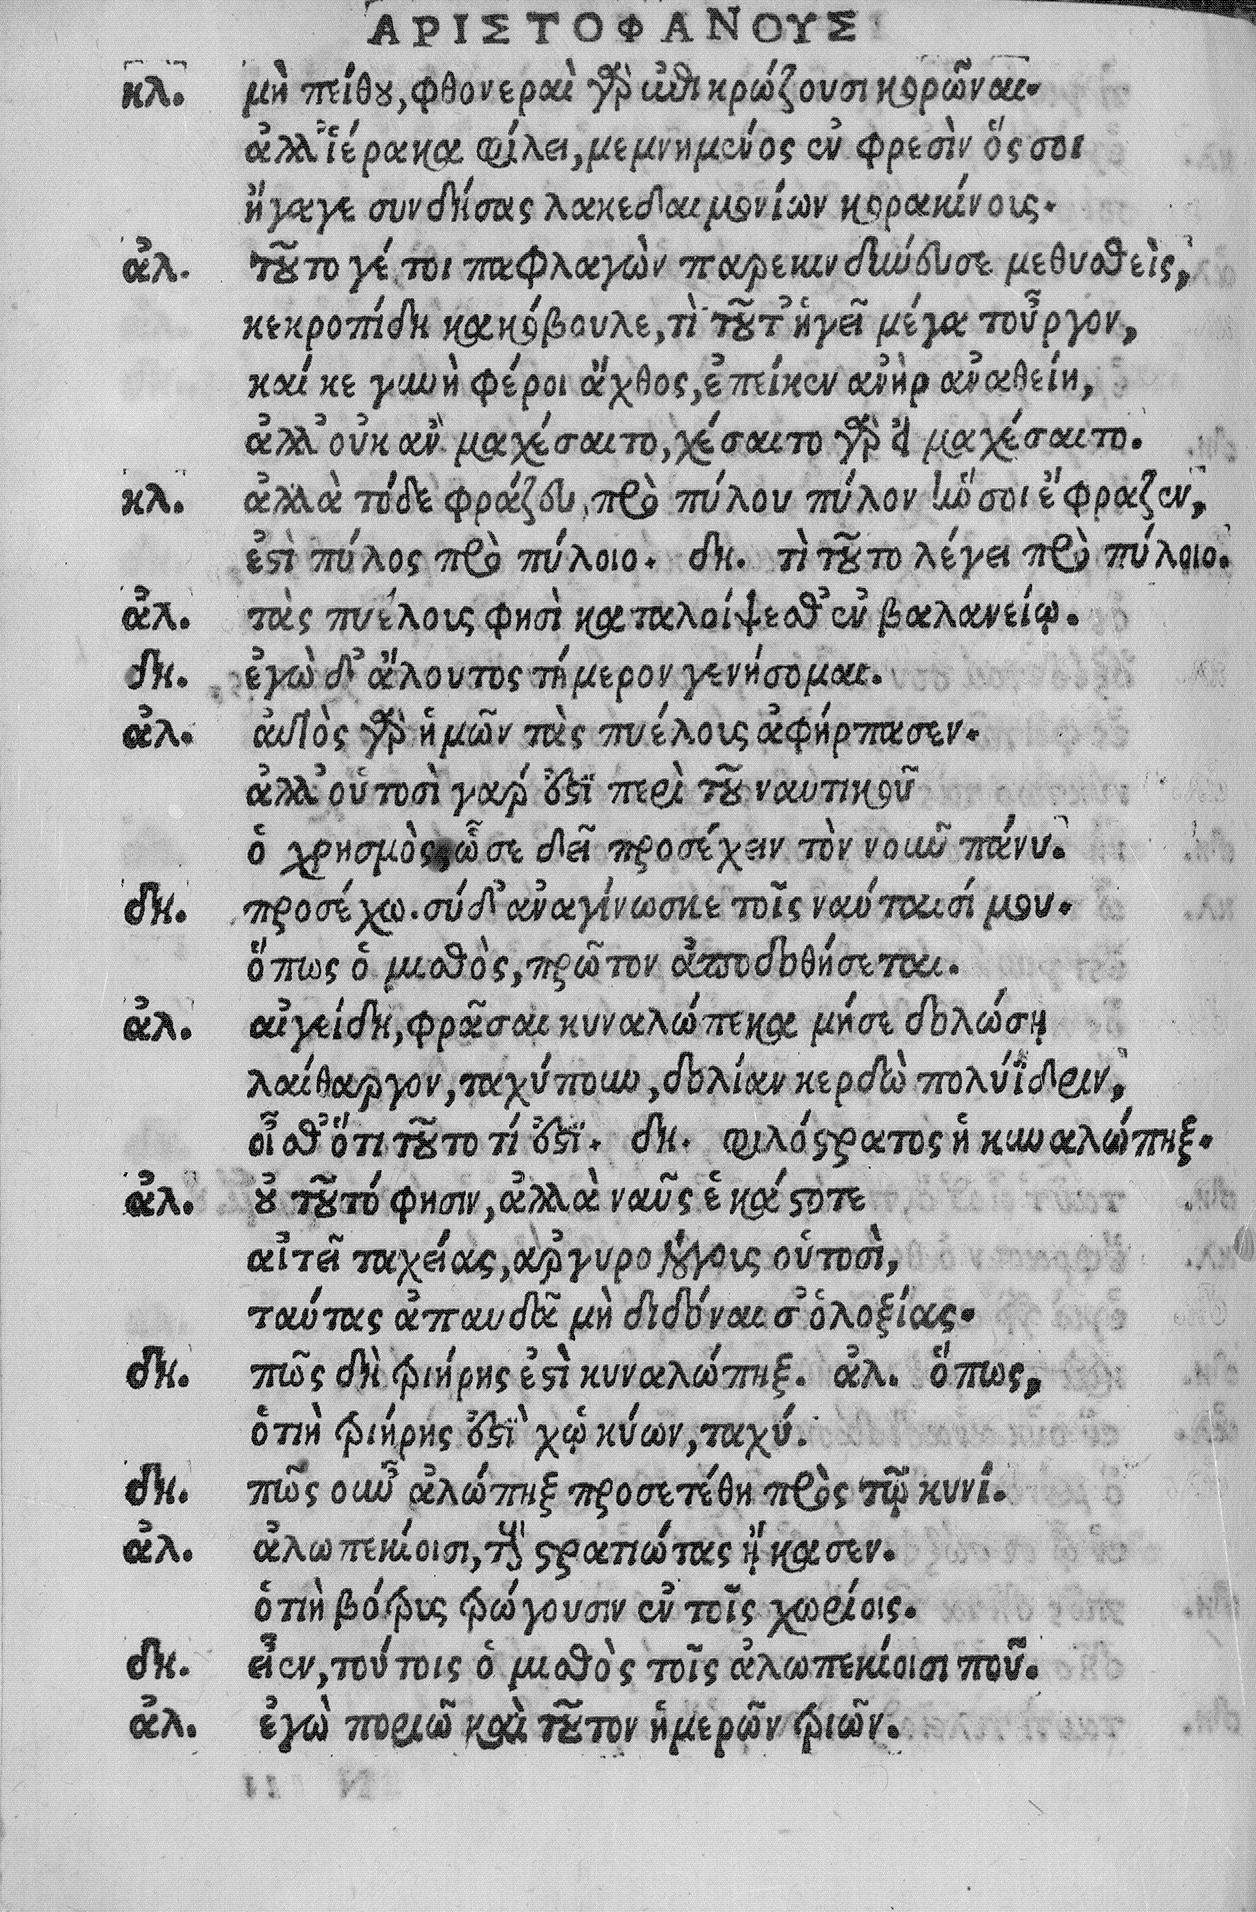 ΑΡΙΣΤΟΦΑΝΟΥΣ
κλ. μὴ πείθου, φθονεραὶ γὰρ ἐπικρώζουσι κορῶναι.
ἀλλ' ἱέρακα φίλει, μεμνημένος ἐν φρεσὶν ὅς σοι
ἤγαγε συνδήσας λακεδαιμονίων κορακίνους.
ἀλ. τοῦτο γέ τοι παφλαγὼν παρεκινδύνευσε μεθυσθεὶς,
κεκροπίδη κακόβουλε, τὶ τοῦτ' ἡγεῖ μέγα τοὖργον,
καί κε γυνὴ φέροι ἄχθος, ἐπείκεν ἀνὴρ ἀναθείη,
ἀλλ' οὐκ ἂν μαχέσαιτο, χέσαιτο γὰρ εἰ μαχέσαιτο.
κλ. ἀλλὰ τόδε φράζευ, πρὸ πύλου πύλον ἥν σοι ἔφραζεν,
ἐστὶ πύλος πρὸ πύλοιο. δη. τὶ τοῦτο λέγει πρὸ πύλοιο.
ἀλ. τὰς πυέλους φησὶ καταλοίψεσθ' ἐν βαλανείῳ.
δη. ἐγὼ δ' ἄλουτος τήμερον γενήσομαι.
ἀλ. αὑτὸς γὰρ ἡμῶν τὰς πυέλους ἀφήρπασεν.
ἀλλ' οὑτοσὶ γάρ ἐστι περὶ τοῦ ναυτικοῦ
ὁ χρησμὸς, ᾧ σε δεῖ προσέχειν τὸν νοῦν πάνυ.
δη. προσέχω. σύ δ' ἀναγίνωσκε τοῖς ναύταισί μου.
ὅπως ὁ μισθὸς, πρῶτον ἀποδοθήσεται.
ἀλ. αἰγείδη, φρᾶσαι κυναλώπεκα μή σε δολώσῃ
λαίθαργον, ταχύπουν, δολίαν κερδὼ πολύϊδριν,
οἶσθ' ὅτι τοῦτο τί ἐστι. δη. φιλόστρατος ἡ κυναλώπηξ.
ἀλ. οὐ τοῦτό φησιν, ἀλλὰ ναῦς ἑκάστοτε
αἰτεῖ ταχείας, ἀργυρολόγους οὑτοσὶ,
ταύτας ἀπαυδᾶ μὴ διδόναι σ' ὁλοξίας.
δη. πῶς δὴ τριήρης ἐστὶ κυναλώπηξ. ἀλ. ὅπως,
ὁτιὴ τριήρης ἐστὶ χᾠ κύων, ταχύ.
δη. πῶς οὖν ἀλώπηξ προσετέθη πρὸς τῷ κυνί.
ἀλ. ἀλωπεκίοισι, τοὺς στρατιώτας ᾔκασεν.
ὁτιὴ βότρυς τρώγουσιν ἐν τοῖς χωρίοις.
δη. εἶεν, τούτοις ὁ μισθὸς τοῖς ἀλωπεκίοισι ποῦ.
ἀλ. ἐγὼ ποριῶ καὶ τοῦτον ἡμερῶν τριῶν.